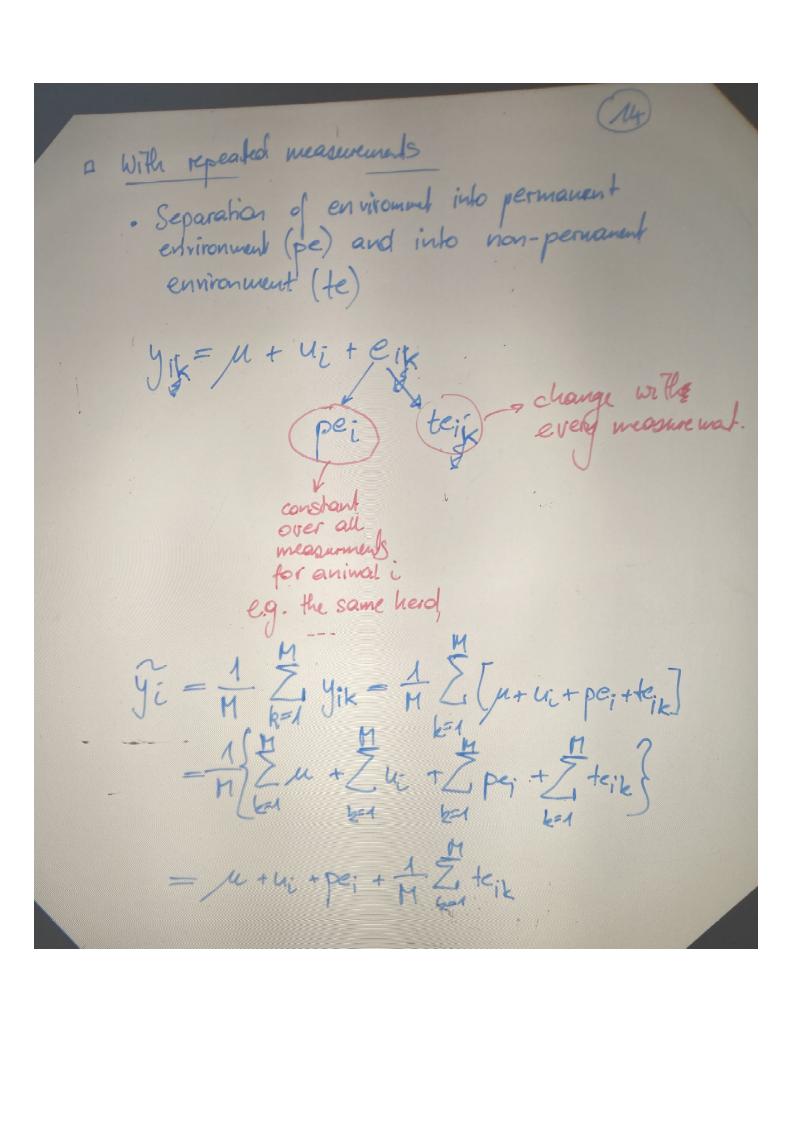 14
With repeated measurements
• Separation of environmet into permanent
environment (pe) and into non-permanent
environment (te)
y_ik = μ + u_i + e_ik
pe_i
te_ik
change with
every measuremat.
constant
over all
measurments
for animal i
e.g. the same herd,
---
ỹ_i = 1/M ∑_{k=1}^{M} y_ik = 1/M ∑_{k=1}^{M} [μ + u_i + pe_i + te_ik]
= 1/M {∑_{k=1}^{M} μ + ∑_{k=1}^{M} u_i + ∑_{k=1}^{M} pe_i + ∑_{k=1}^{M} te_ik}
= μ + u_i + pe_i + 1/M ∑_{k=1}^{M} te_ik